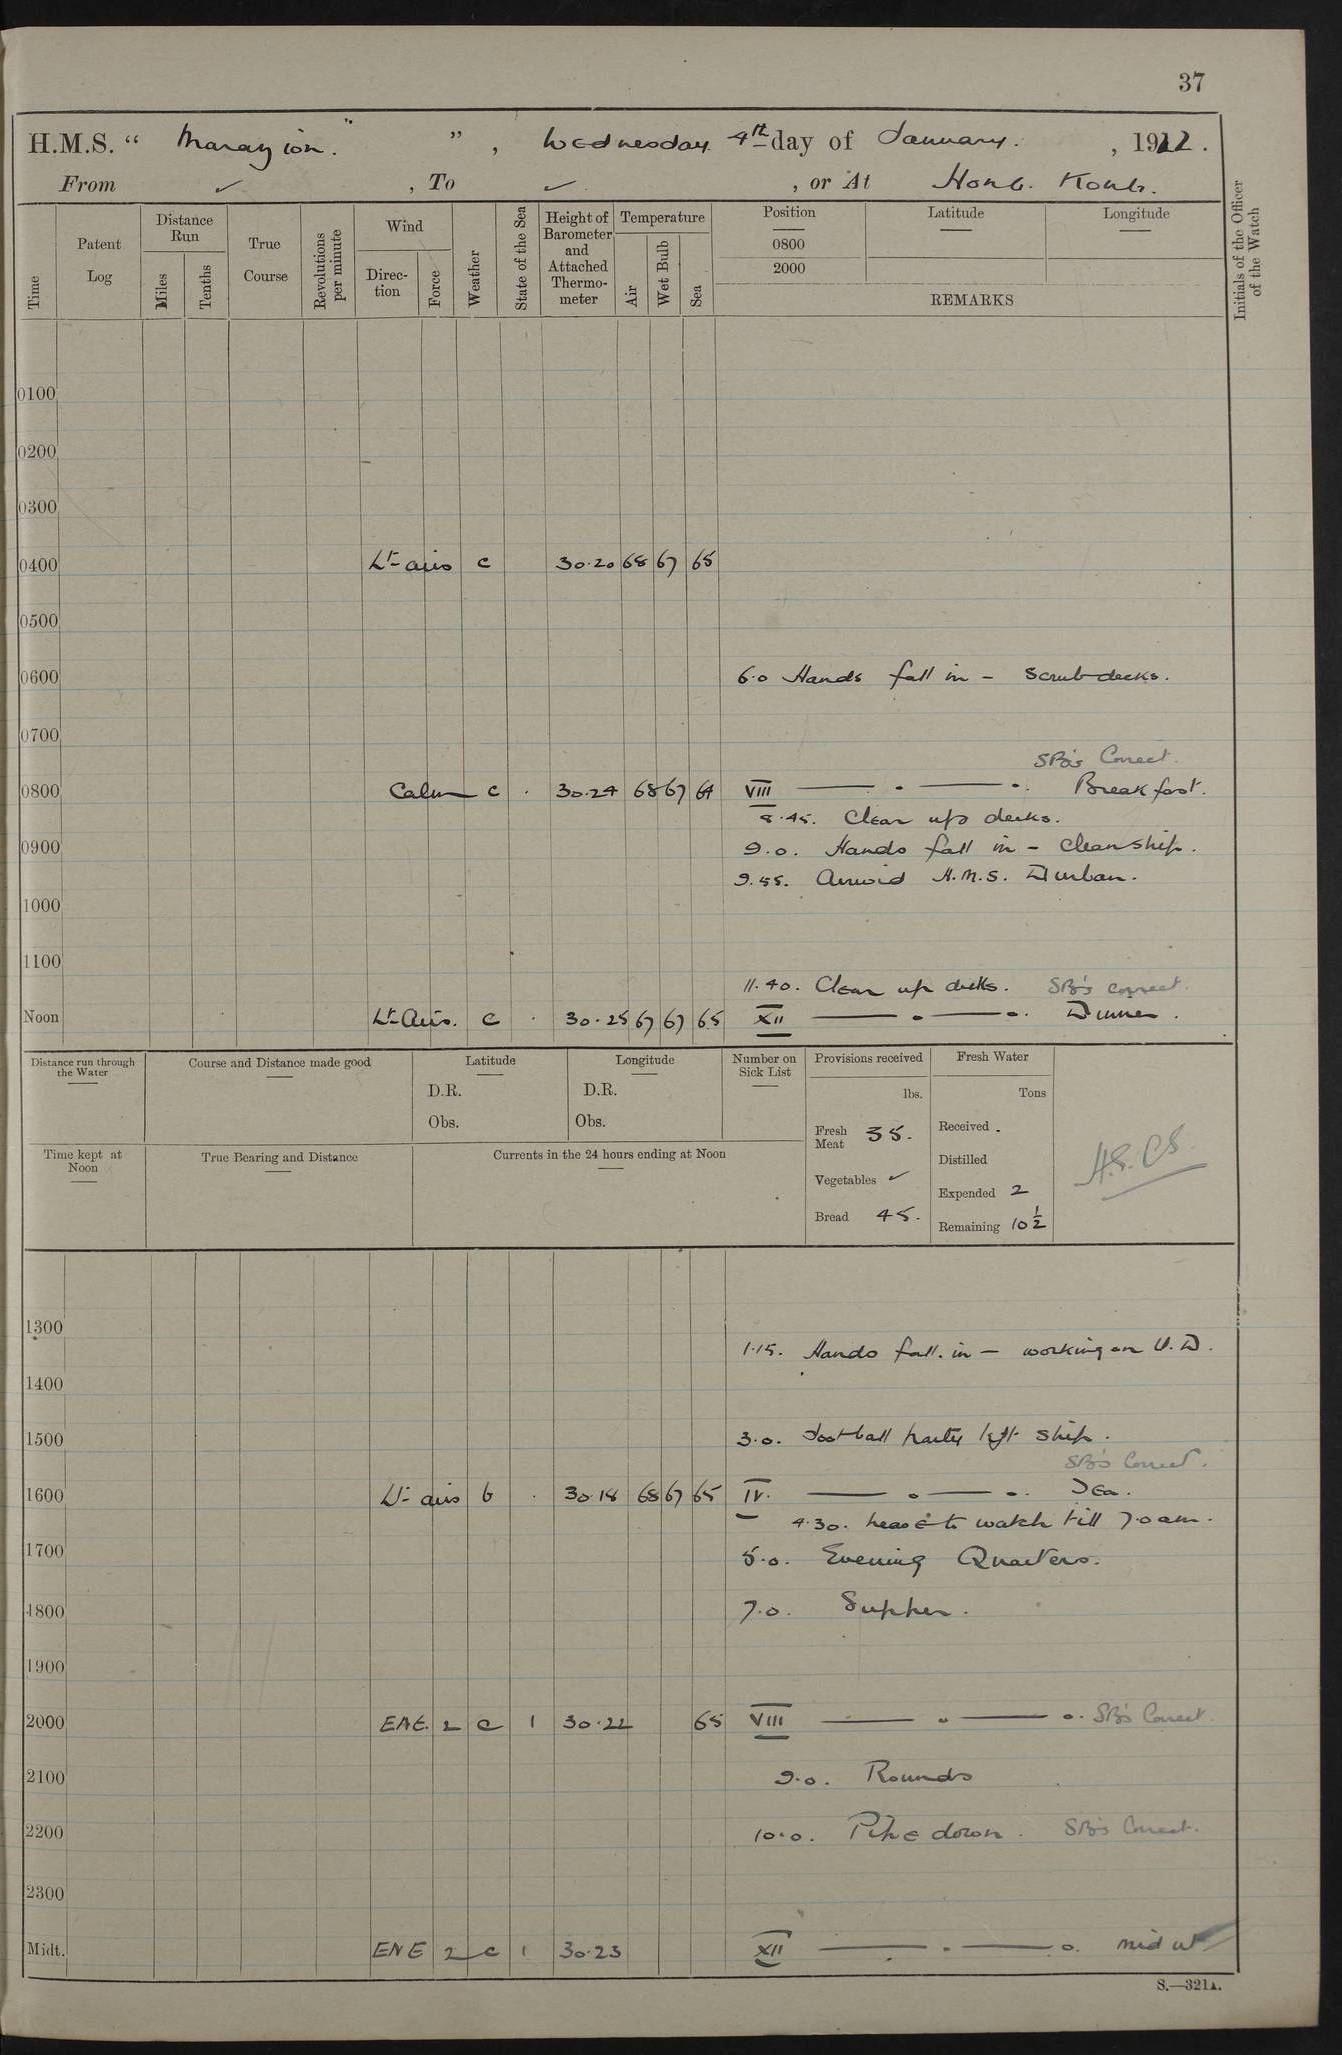 37
H.M.S. “ Marazion. ” , Wednesday 4th day of January. , 1922.
From ✓ , To ✓ , or At Hong Kong.
Time Patent Log Distance Run Miles Tenths True Course Revolutions per minute Wind Direc-tion Force Weather State of the Sea Height of Barometer and Attached Thermo-meter Temperature Air Wet Bulb Sea Position 0800 2000 Latitude Longitude REMARKS Initials of the Officer of the Watch
0100
0200
0300
0400 Lt airs c 30.20 68 67 65
0500
0600 6.0 Hands fall in - Scrub decks.
0700
SB's Correct.
0800 Calm c . 30.24 68 67 64 VIII —— o —— o. Breakfast.
8.45. Clear up decks.
0900 9.0. Hands fall in - Clean ship.
9.55. Arrived H.M.S. Durban.
1000
1100
11.40. Clear up decks. SB's correct.
Noon Lt Airs. c . 30.25 67 67 65 XII —— o —— o. Dinner.
Distance run through the Water Course and Distance made good Latitude Longitude Number on Sick List Provisions received Fresh Water
D.R. D.R. lbs. Tons
Obs. Obs. Fresh Meat 35. Received .
Time kept at Noon True Bearing and Distance Currents in the 24 hours ending at Noon Distilled
Vegetables ✓ Expended 2
Bread 45. Remaining 10 1/2
1300
1.15. Hands fall in - working on U.D.
1400
1500 3.0. Football party left ship.
SB's Correct.
1600 Lt airs b . 30.18 68 67 65 IV. —— o —— o. Tea.
4.30. leave to watch till 7.0 am.
1700 5.0. Evening Quarters.
1800 7.0. Supper.
1900
2000 ENE. 2 c 1 30.22 65 VIII —— o —— o. SB's Correct.
2100 9.0. Rounds
2200 10.0. Pipe down. SB's Correct.
2300
Midt. ENE 2 c 1 30.23 XII —— o —— o.
S.—321A.